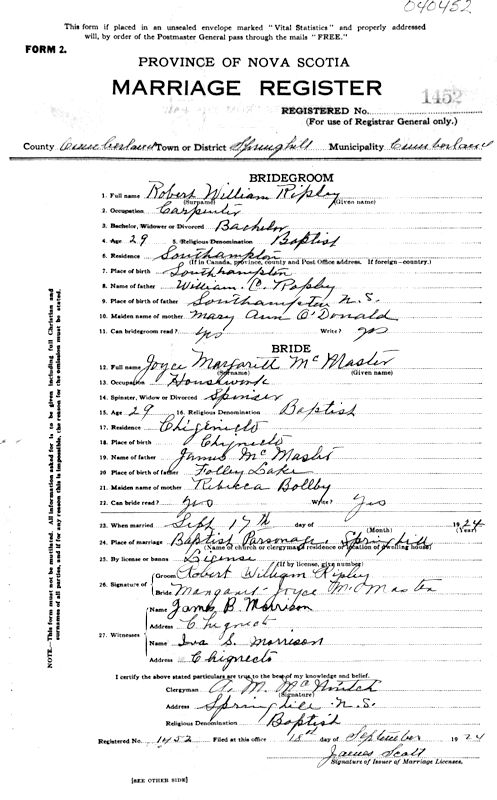 040452
This form if placed in an unsealed envelope marked "Vital Statistics" and properly addressed
will, by order of the Postmaster General pass through the mails "FREE."
FORM 2.
PROVINCE OF NOVA SCOTIA
MARRIAGE REGISTER
REGISTERED No. 1452
(For use of Registrar General only.)
County Cumberland Town or District Springhill Municipality Cumberland
BRIDEGROOM
1. Full name Robert William Ripley
(Surname) (Given name)
2. Occupation Carpenter
3. Bachelor, Widower or Divorced Bachelor
4. Age 29 5. Religious Denomination Baptist
6. Residence Southampton
(If in Canada, province, county and Post Office address. If foreign—country.)
7. Place of birth Southhampton
8. Name of father William C. Ripley
9. Place of father Southampton N.S.
10. Maiden name of mother Mary Ann O'Donald
11. Can bridegroom read? yes Write? yes
BRIDE
12. Full name Joyce Margarett McMaster
(Surname) (Given name)
13. Occupation Housework
14. Spinster, Widow or Divorced Spinser
15. Age 29 16. Religious Denomination Baptish
17. Residence Chigenicto
18. Place of birth Chignecto
19. Name of father James McMaster
20. Place of birth of father Folley Lake
21. Maiden name of mother Rebikca Bollby
22. Can bride read? yes Write? Yes
23. When married Sept 17th day of 1924
(Month) (Year)
24. Place of marriage Baptist Parsonage, Springhill
(Name of church or clergyman's residence or location of dwelling house)
25. By license or banns License
(If by license, give number)
26. Signature of Groom Robert William Ripley
Bride Margaret Joyce McMaster
27. Witnesses Name James B. Morrison
Address Chignecto
Name Iva S. Morrison
Address Chignecto
I certify the above stated particulars are true to the best of my knowledge and belief.
Clergyman A. M. McNintch
(Signature)
Address Springhill N.S.
Religious Denomination Baptist
Registered No. 1452 Filed at this office 18th day of September 1924
James Scott
Signature of Issuer of Marriage Licenses.
[SEE OTHER SIDE]
NOTE—This form must not be mutilated. All information asked for is to be given including full Christian and
surnames of all parties, and if for any reason this is impossible, the reason for the omission must be stated.